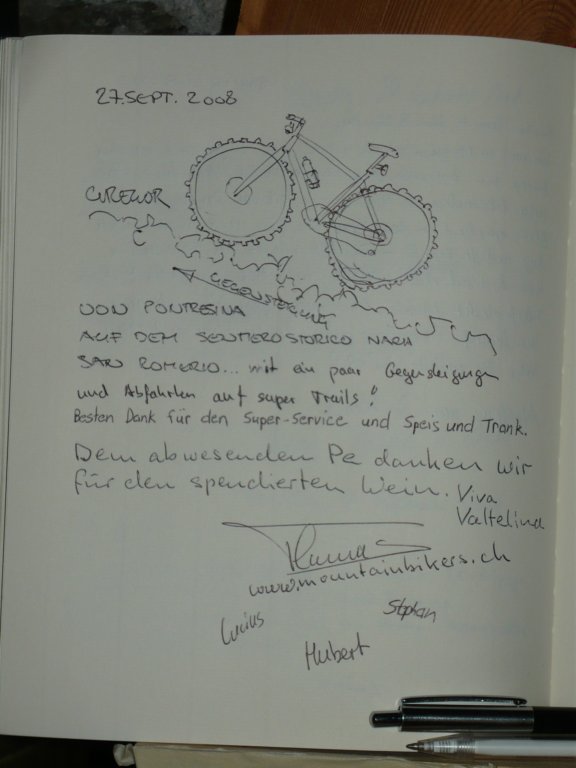 27.SEPT. 2008
GEGENSTEIGUNG
VON PONTRESINA
AUF DEM SENTIERO STORICO NACH
SAN ROMERIO... mit ein paar Gegensteigungen
und Abfahrten auf super Trails!
Besten Dank für den Super-Service und Speis und Trank.
Dem abwesenden Pa danken wir
für den spendierten Wein. Viva
Valtelina
www.mountainbikers.ch
Lucius
Stephan
Hubert